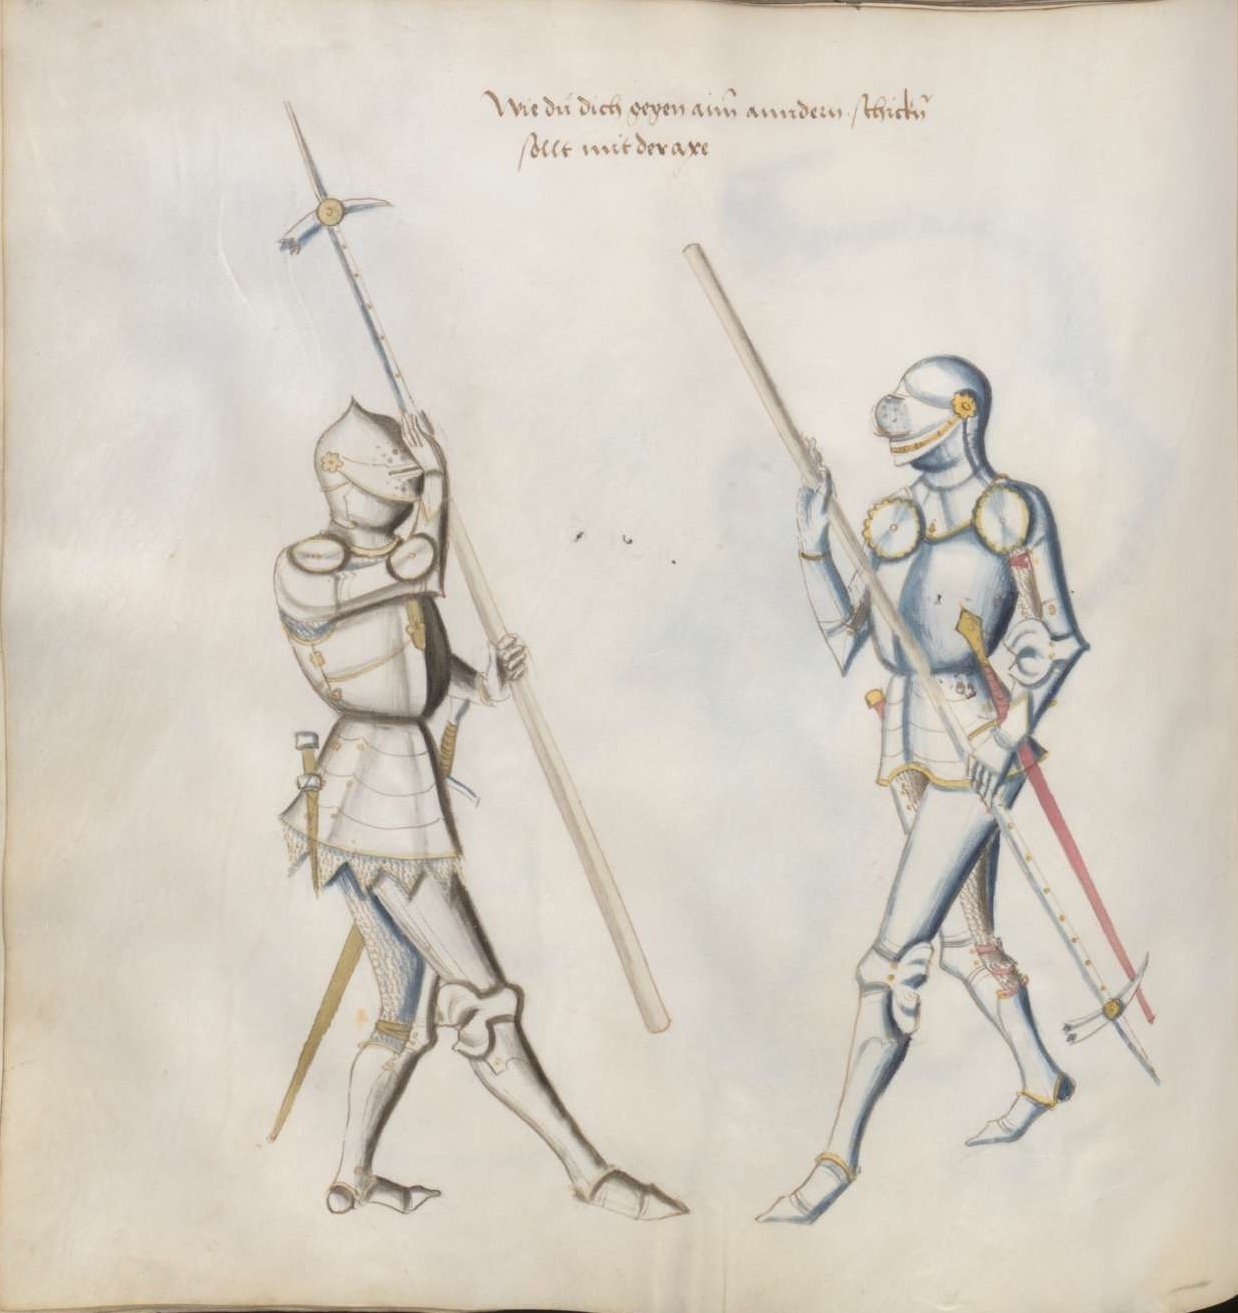 Wie dü dich gegen aim̄ anndern schickn̄
sollt mit der axe